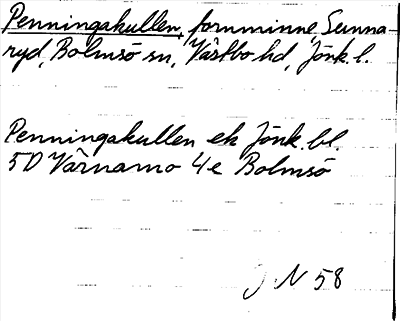 Penningakullen, fornminne, Sunna-
ryd, Bolmsö sn, Västbo hd, Jönk. l.
Penningakullen ek Jönk. bl.
5D Värnamo 4e Bolmsö
J N 58